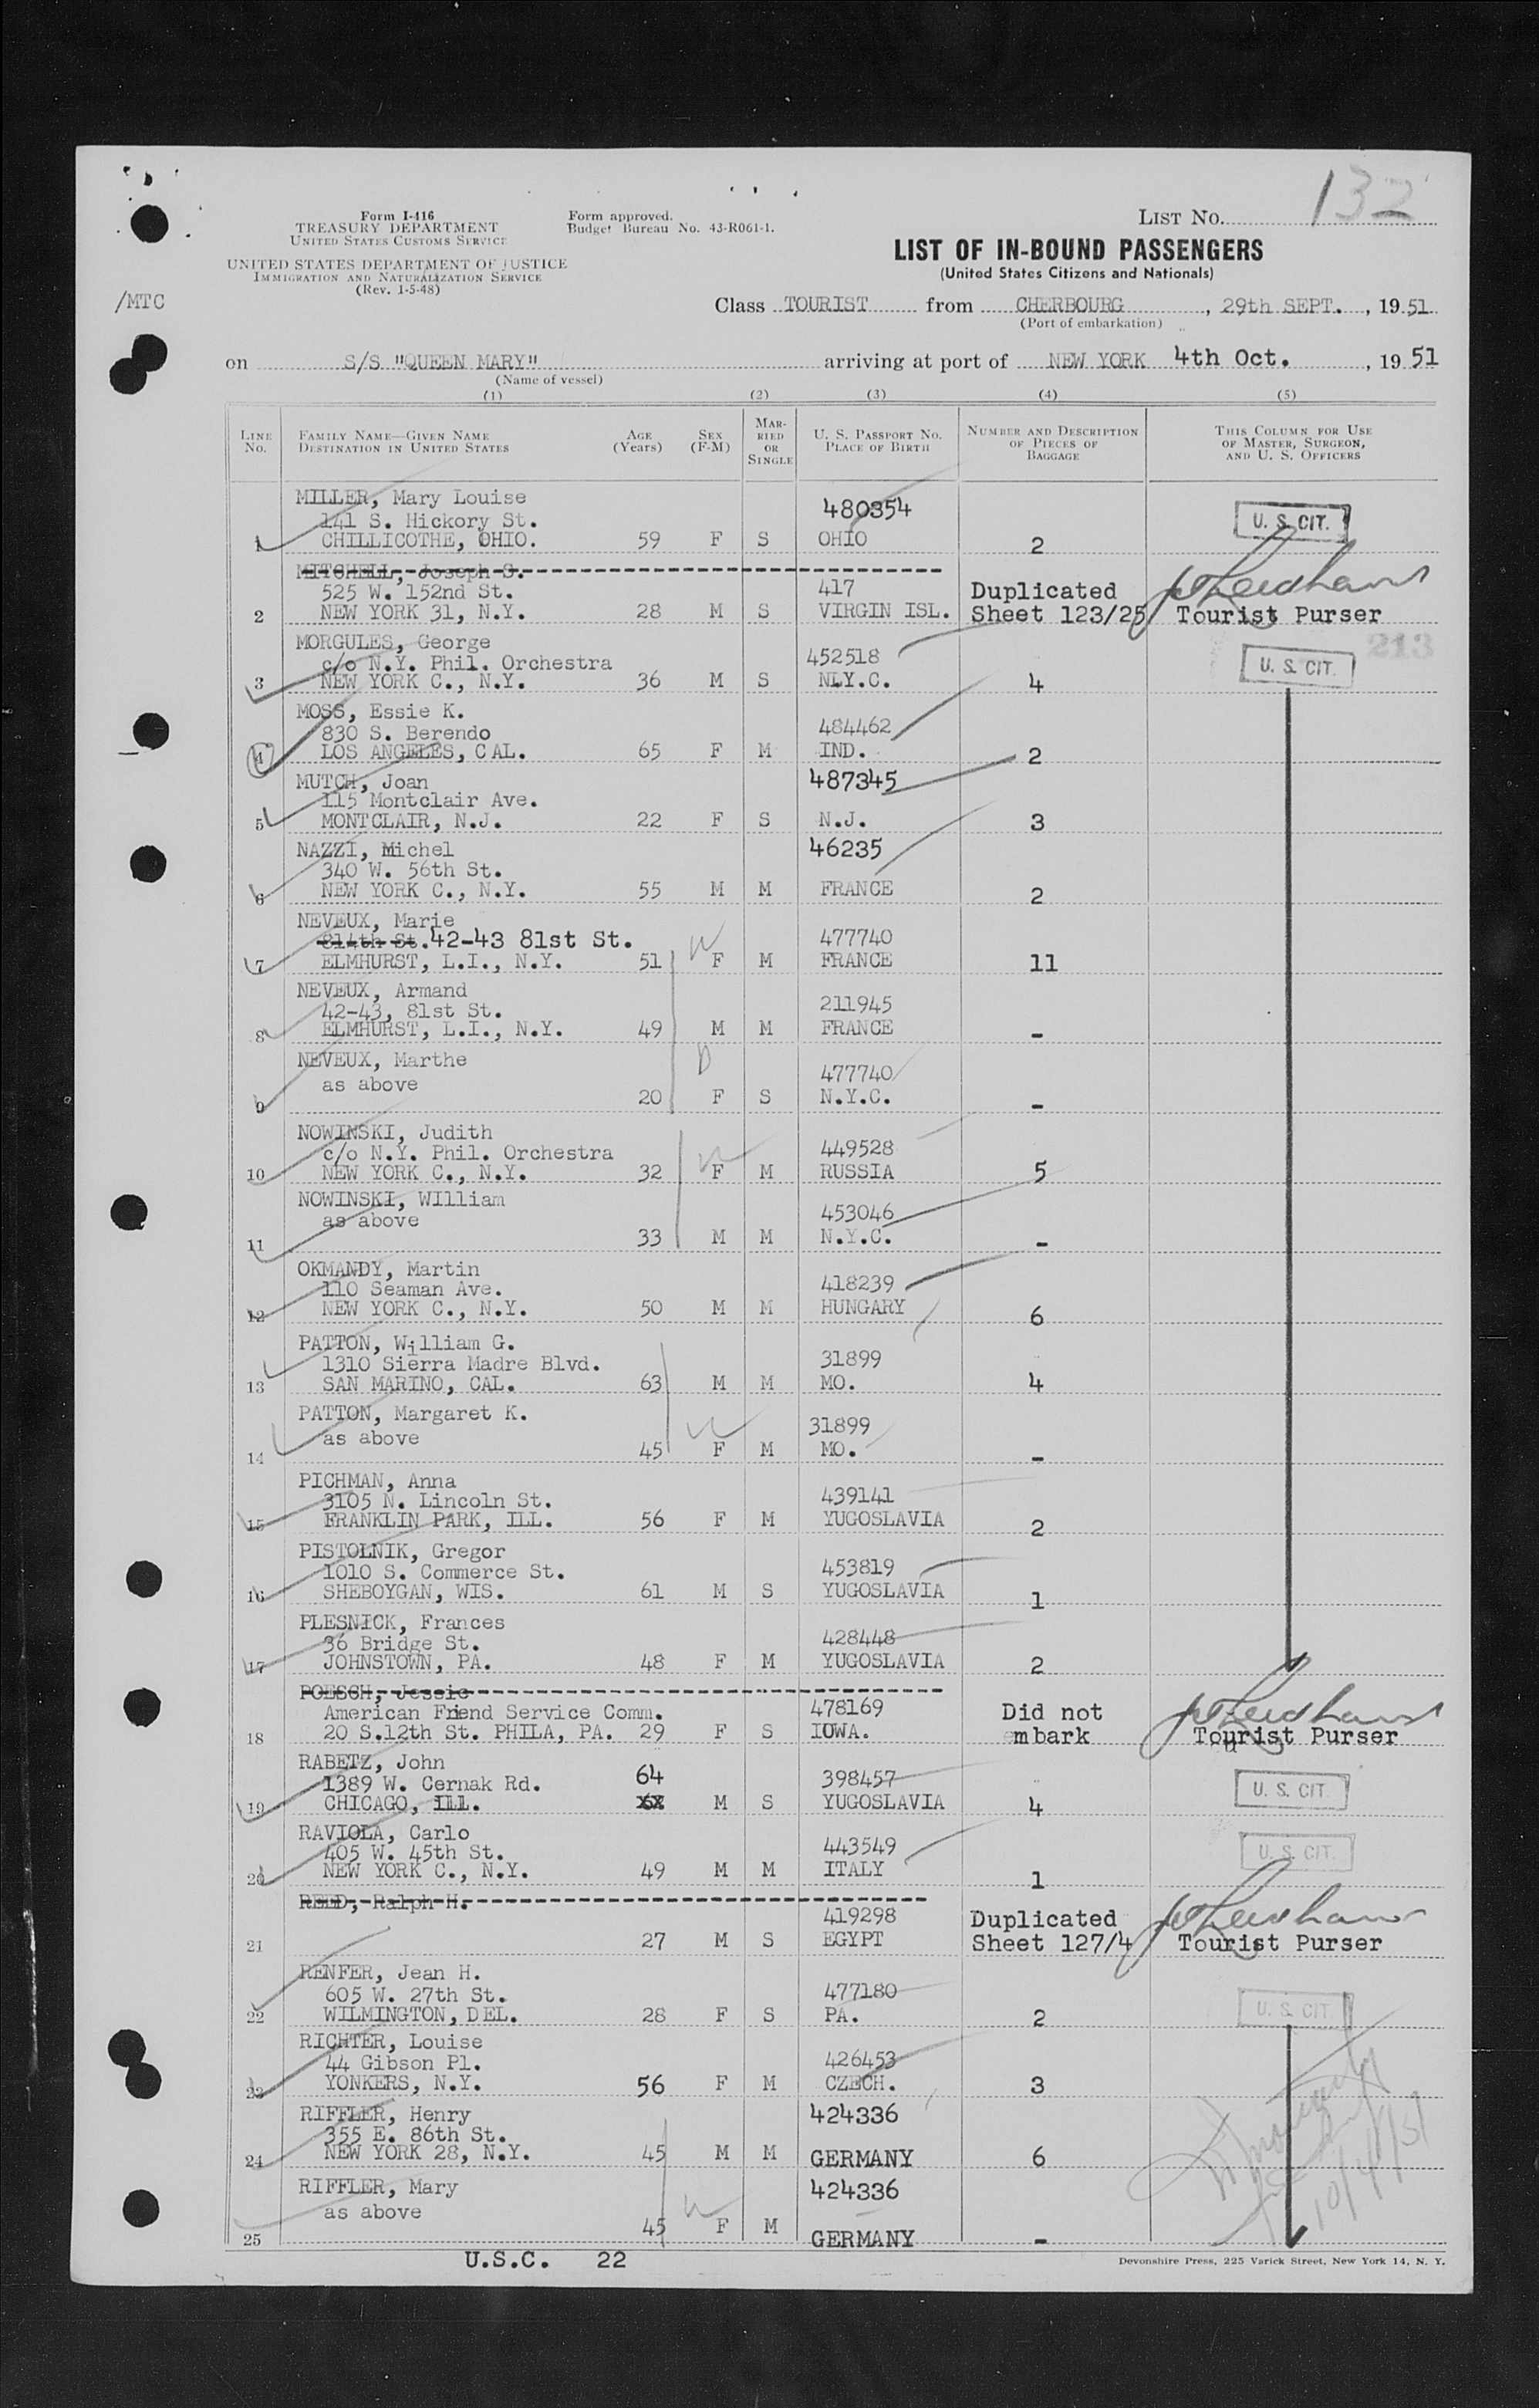 132
Form I-416
TREASURY DEPARTMENT
UNITED STATES CUSTOMS SERVICE
Form approved.
Budget Bureau No. 43-R061-1.
LIST NO.
LIST OF IN-BOUND PASSENGERS
(United States Citizens and Nationals)
UNITED STATES DEPARTMENT OF JUSTICE
IMMIGRATION AND NATURALIZATION SERVICE
(Rev. 1-5-48)
/MTC
Class TOURIST from CHERBOURG, 29th SEPT., 1951
(Port of embarkation)
on S/S "QUEEN MARY" arriving at port of NEW YORK 4th Oct., 1951
(Name of vessel)
(1) (2) (3) (4) (5)
LINE No. FAMILY NAME—GIVEN NAME DESTINATION IN UNITED STATES AGE (Years) SEX (F-M) MARRIED OR SINGLE U. S. PASSPORT NO. PLACE OF BIRTH NUMBER AND DESCRIPTION OF PIECES OF BAGGAGE THIS COLUMN FOR USE OF MASTER, SURGEON, AND U. S. OFFICERS
MILLER, Mary Louise
141 S. Hickory St. 480354 U. S. CIT.
1 CHILLICOTHE, OHIO. 59 F S OHIO 2
MITCHELL, Joseph S.
525 W. 152nd St. 417 Duplicated
2 NEW YORK 31, N.Y. 28 M S VIRGIN ISL. Sheet 123/25 Tourist Purser
213
MORGULES, George
c/o N.Y. Phil. Orchestra 452518 U. S. CIT.
3 NEW YORK C., N.Y. 36 M S NLY.C. 4
MOSS, Essie K.
830 S. Berendo 484462
4 LOS ANGELES, CAL. 65 F M IND. 2
MUTCH, Joan 487345
115 Montclair Ave.
5 MONTCLAIR, N.J. 22 F S N.J. 3
NAZZI, Michel 46235
340 W. 56th St.
6 NEW YORK C., N.Y. 55 M M FRANCE 2
NEVEUX, Marie
814th St. 42-43 81st St. 477740
7 ELMHURST, L.I., N.Y. 51 F M FRANCE 11
NEVEUX, Armand
42-43, 81st St. 211945
8 ELMHURST, L.I., N.Y. 49 M M FRANCE -
NEVEUX, Marthe
as above 477740
9 20 F S N.Y.C. -
NOWINSKI, Judith
c/o N.Y. Phil. Orchestra 449528
10 NEW YORK C., N.Y. 32 F M RUSSIA 5
NOWINSKI, WIlliam
as above 453046
11 33 M M N.Y.C. -
OKMANDY, Martin
110 Seaman Ave. 418239
12 NEW YORK C., N.Y. 50 M M HUNGARY 6
PATTON, William G.
1310 Sierra Madre Blvd. 31899
13 SAN MARINO, CAL. 63 M M MO. 4
PATTON, Margaret K.
as above 31899
14 45 F M MO. -
PICHMAN, Anna
3105 N. Lincoln St. 439141
15 FRANKLIN PARK, ILL. 56 F M YUGOSLAVIA 2
PISTOLNIK, Gregor
1010 S. Commerce St. 453819
16 SHEBOYGAN, WIS. 61 M S YUGOSLAVIA 1
PLESNICK, Frances
36 Bridge St. 428448
17 JOHNSTOWN, PA. 48 F M YUGOSLAVIA 2
POESCH, Jessie
American Friend Service Comm. 478169 Did not
18 20 S.12th St. PHILA, PA. 29 F S IOWA. embark Tourist Purser
RABETZ, John
1389 W. Cernak Rd. 64 398457 U. S. CIT.
19 CHICAGO, Ill. M S YUGOSLAVIA 4
RAVIOLA, Carlo
405 W. 45th St. 443549 U. S. CIT.
20 NEW YORK C., N.Y. 49 M M ITALY 1
REED, Ralph H.
419298 Duplicated
21 27 M S EGYPT Sheet 127/4 Tourist Purser
RENFER, Jean H.
605 W. 27th St. 477180 U. S. CIT.
22 WILMINGTON, DEL. 28 F S PA. 2
RICHTER, Louise
44 Gibson Pl. 426453
23 YONKERS, N.Y. 56 F M CZECH. 3
RIFFLER, Henry 424336
355 E. 86th St.
24 NEW YORK 28, N.Y. 45 M M GERMANY 6
10/4/51
RIFFLER, Mary 424336
as above
25 45 F M GERMANY -
U.S.C. 22
Devonshire Press, 225 Varick Street, New York 14, N. Y.